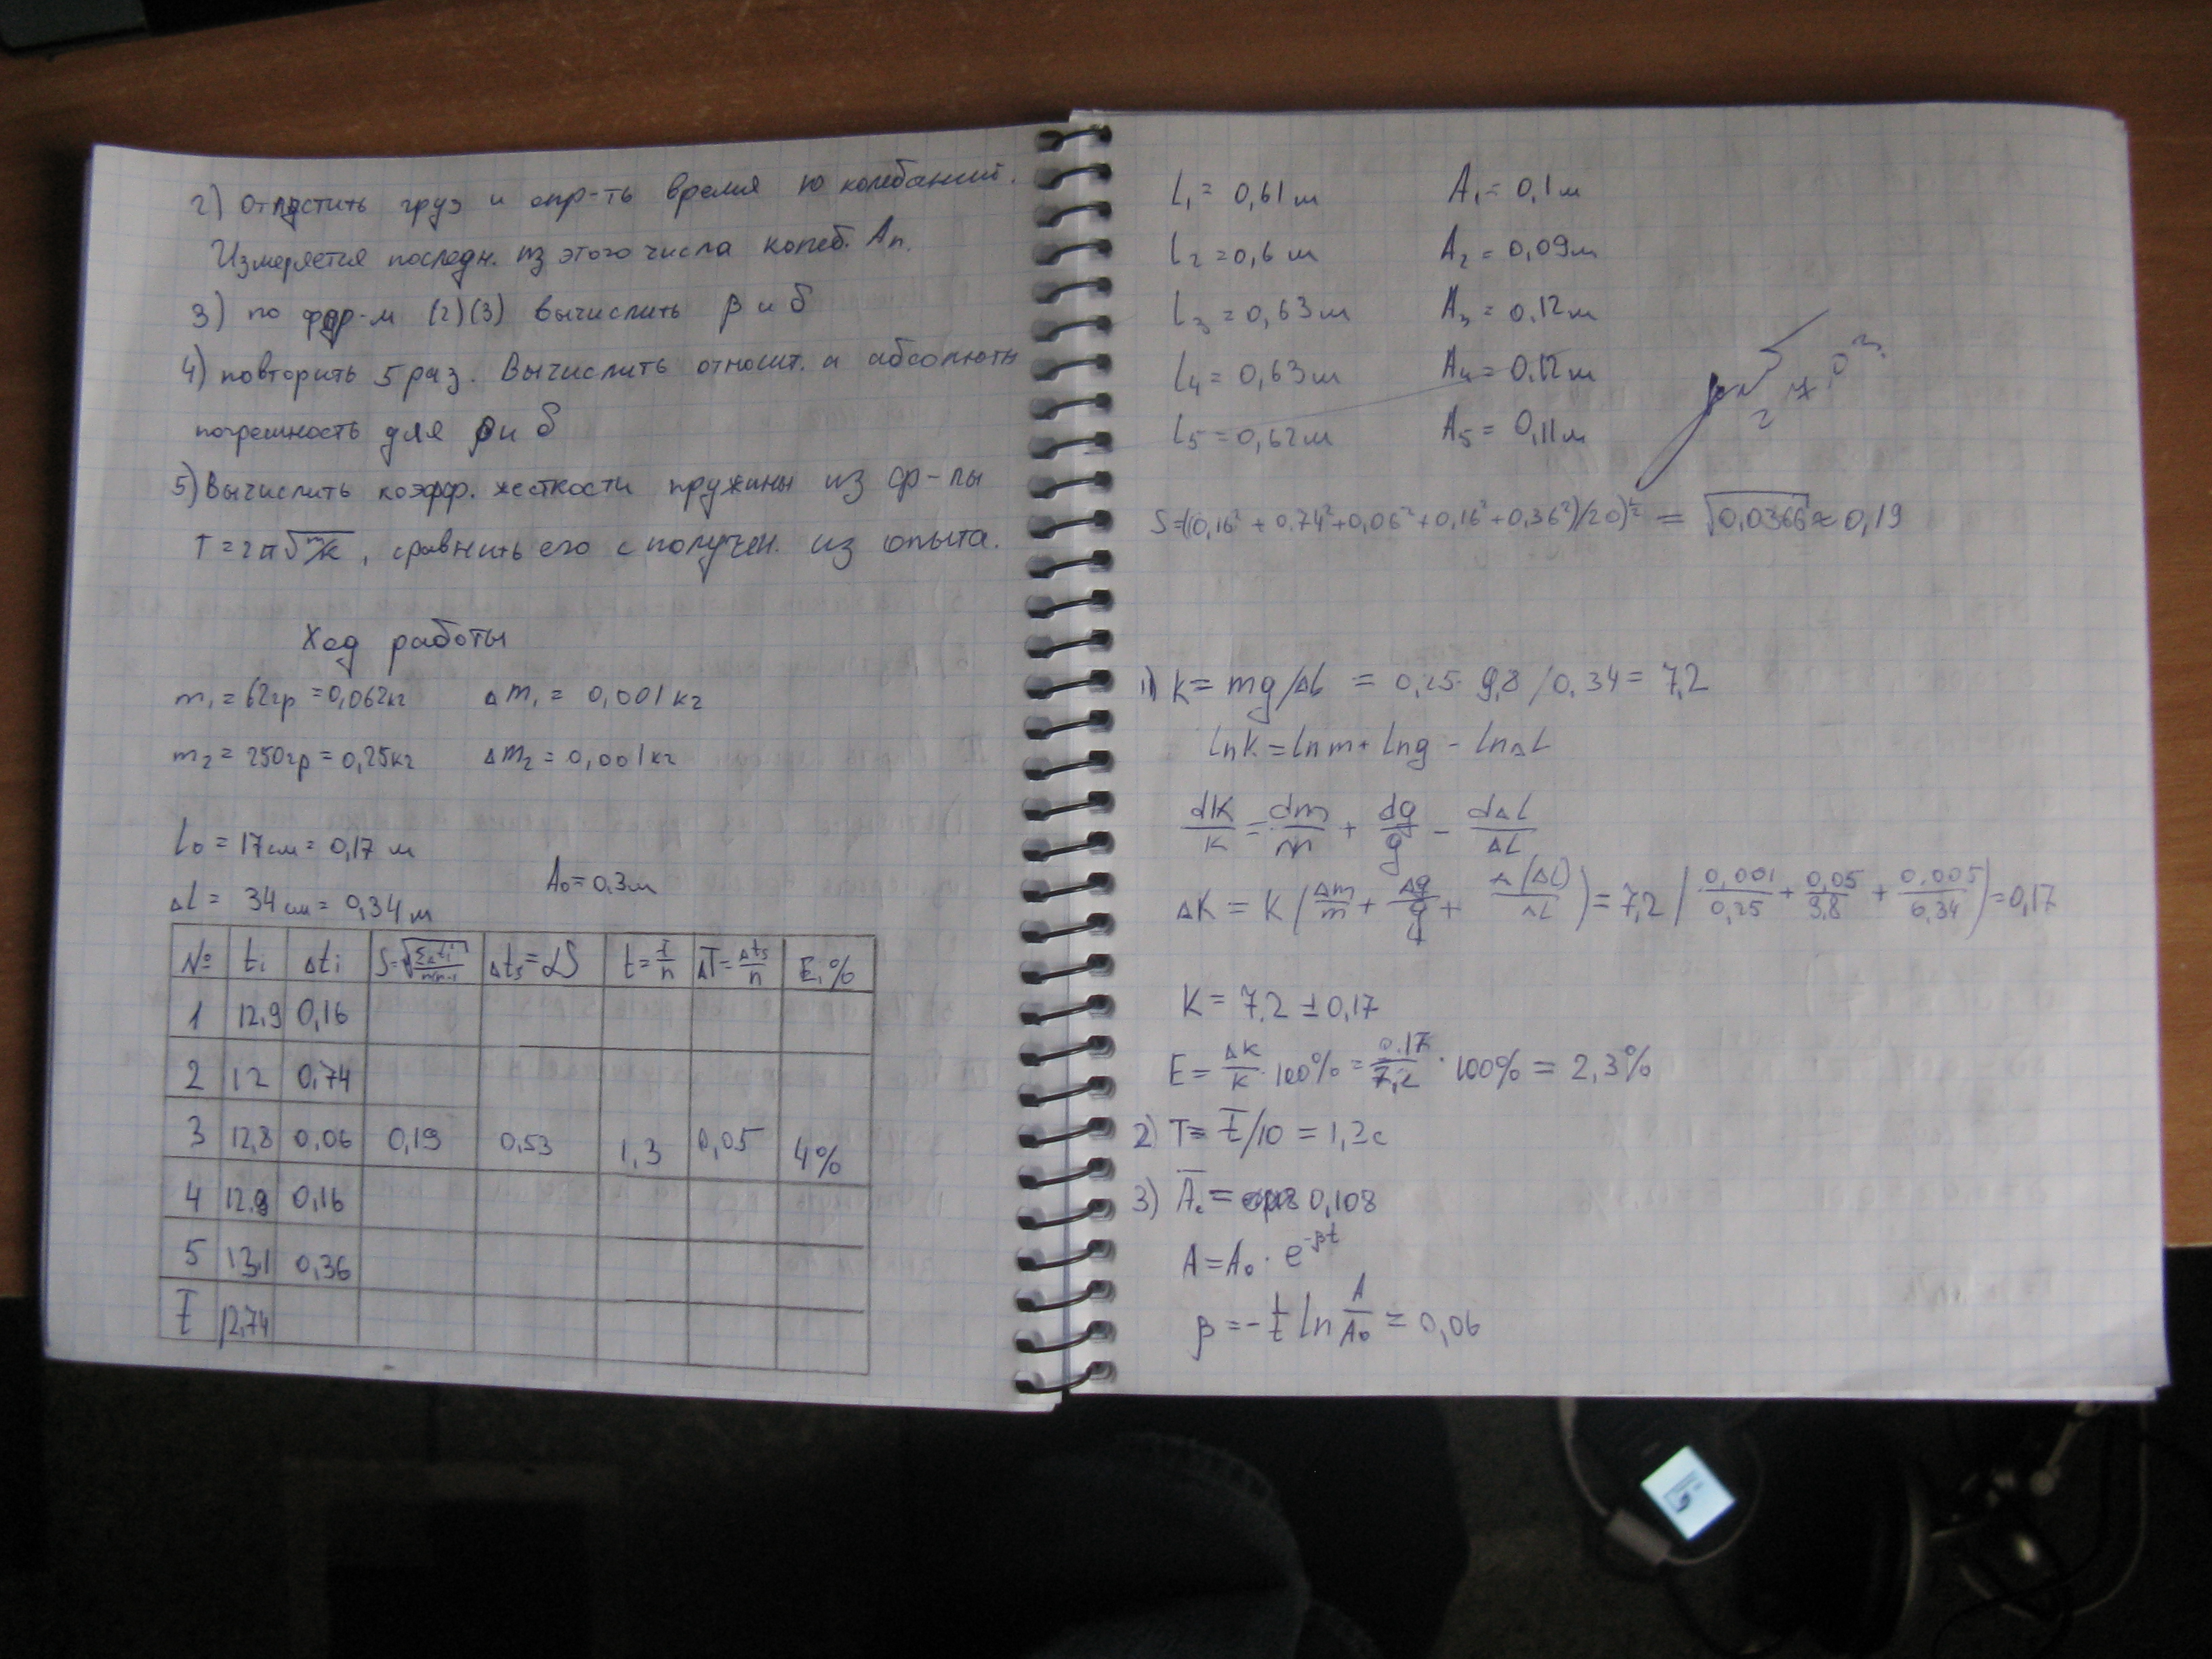 2) отпустить груз и опр-ть время 10 колебаний.
Измеряется последн. из этого числа колеб. Aп.
3) по фор-м (2)(3) вычислить β и δ
4) повторить 5 раз. Вычислить относит. и абсолютн
погрешность для β и δ
5) Вычислить коэфф. жесткости пружины из ф-лы
T = 2π√m/k, сравнить его с получен. из опыта.
Ход работы
m₁ = 62гр = 0,062кг Δm₁ = 0,001кг
m₂ = 250гр = 0,25кг Δm₂ = 0,001кг
l₀ = 17см = 0,17 м
A₀ = 0,3м
Δl = 34 см = 0,34 м
№ ti Δti S=√(ΣΔti/n(n-1)) Δts=αS t=t̄/n ΔT=Δts/n E,%
1 12,9 0,16
2 12 0,74
3 12,8 0,06 0,19 0,53 1,3 0,05 4%
4 12,9 0,16
5 13,1 0,36
t̄ 12,74
l₁ = 0,61м A₁ = 0,1м
l₂ = 0,6 м A₂ = 0,09м
l₃ = 0,63м A₃ = 0,12м
l₄ = 0,63м A₄ = 0,12м
l₅ = 0,62м A₅ = 0,11м
S=((0,16² + 0,74² + 0,06² + 0,16² + 0,36²)/20)^½ = √0,0366 ≈ 0,19
1) k = mg/ΔL = 0,25·9,8/0,34 = 7,2
lnk = lnm + lng - lnΔL
dk/k = dm/m + dg/g - dΔL/ΔL
Δk = k(Δm/m + Δg/g + Δ(ΔL)/ΔL) = 7,2(0,001/0,25 + 0,05/9,8 + 0,005/0,34) = 0,17
k = 7,2 ± 0,17
E = Δk/k·100% = 0,17/7,2·100% = 2,3%
2) T = t̄/10 = 1,3с
3) = 0,108
A = A₀·e^-βt
β = -1/t ln A/A₀ = 0,06